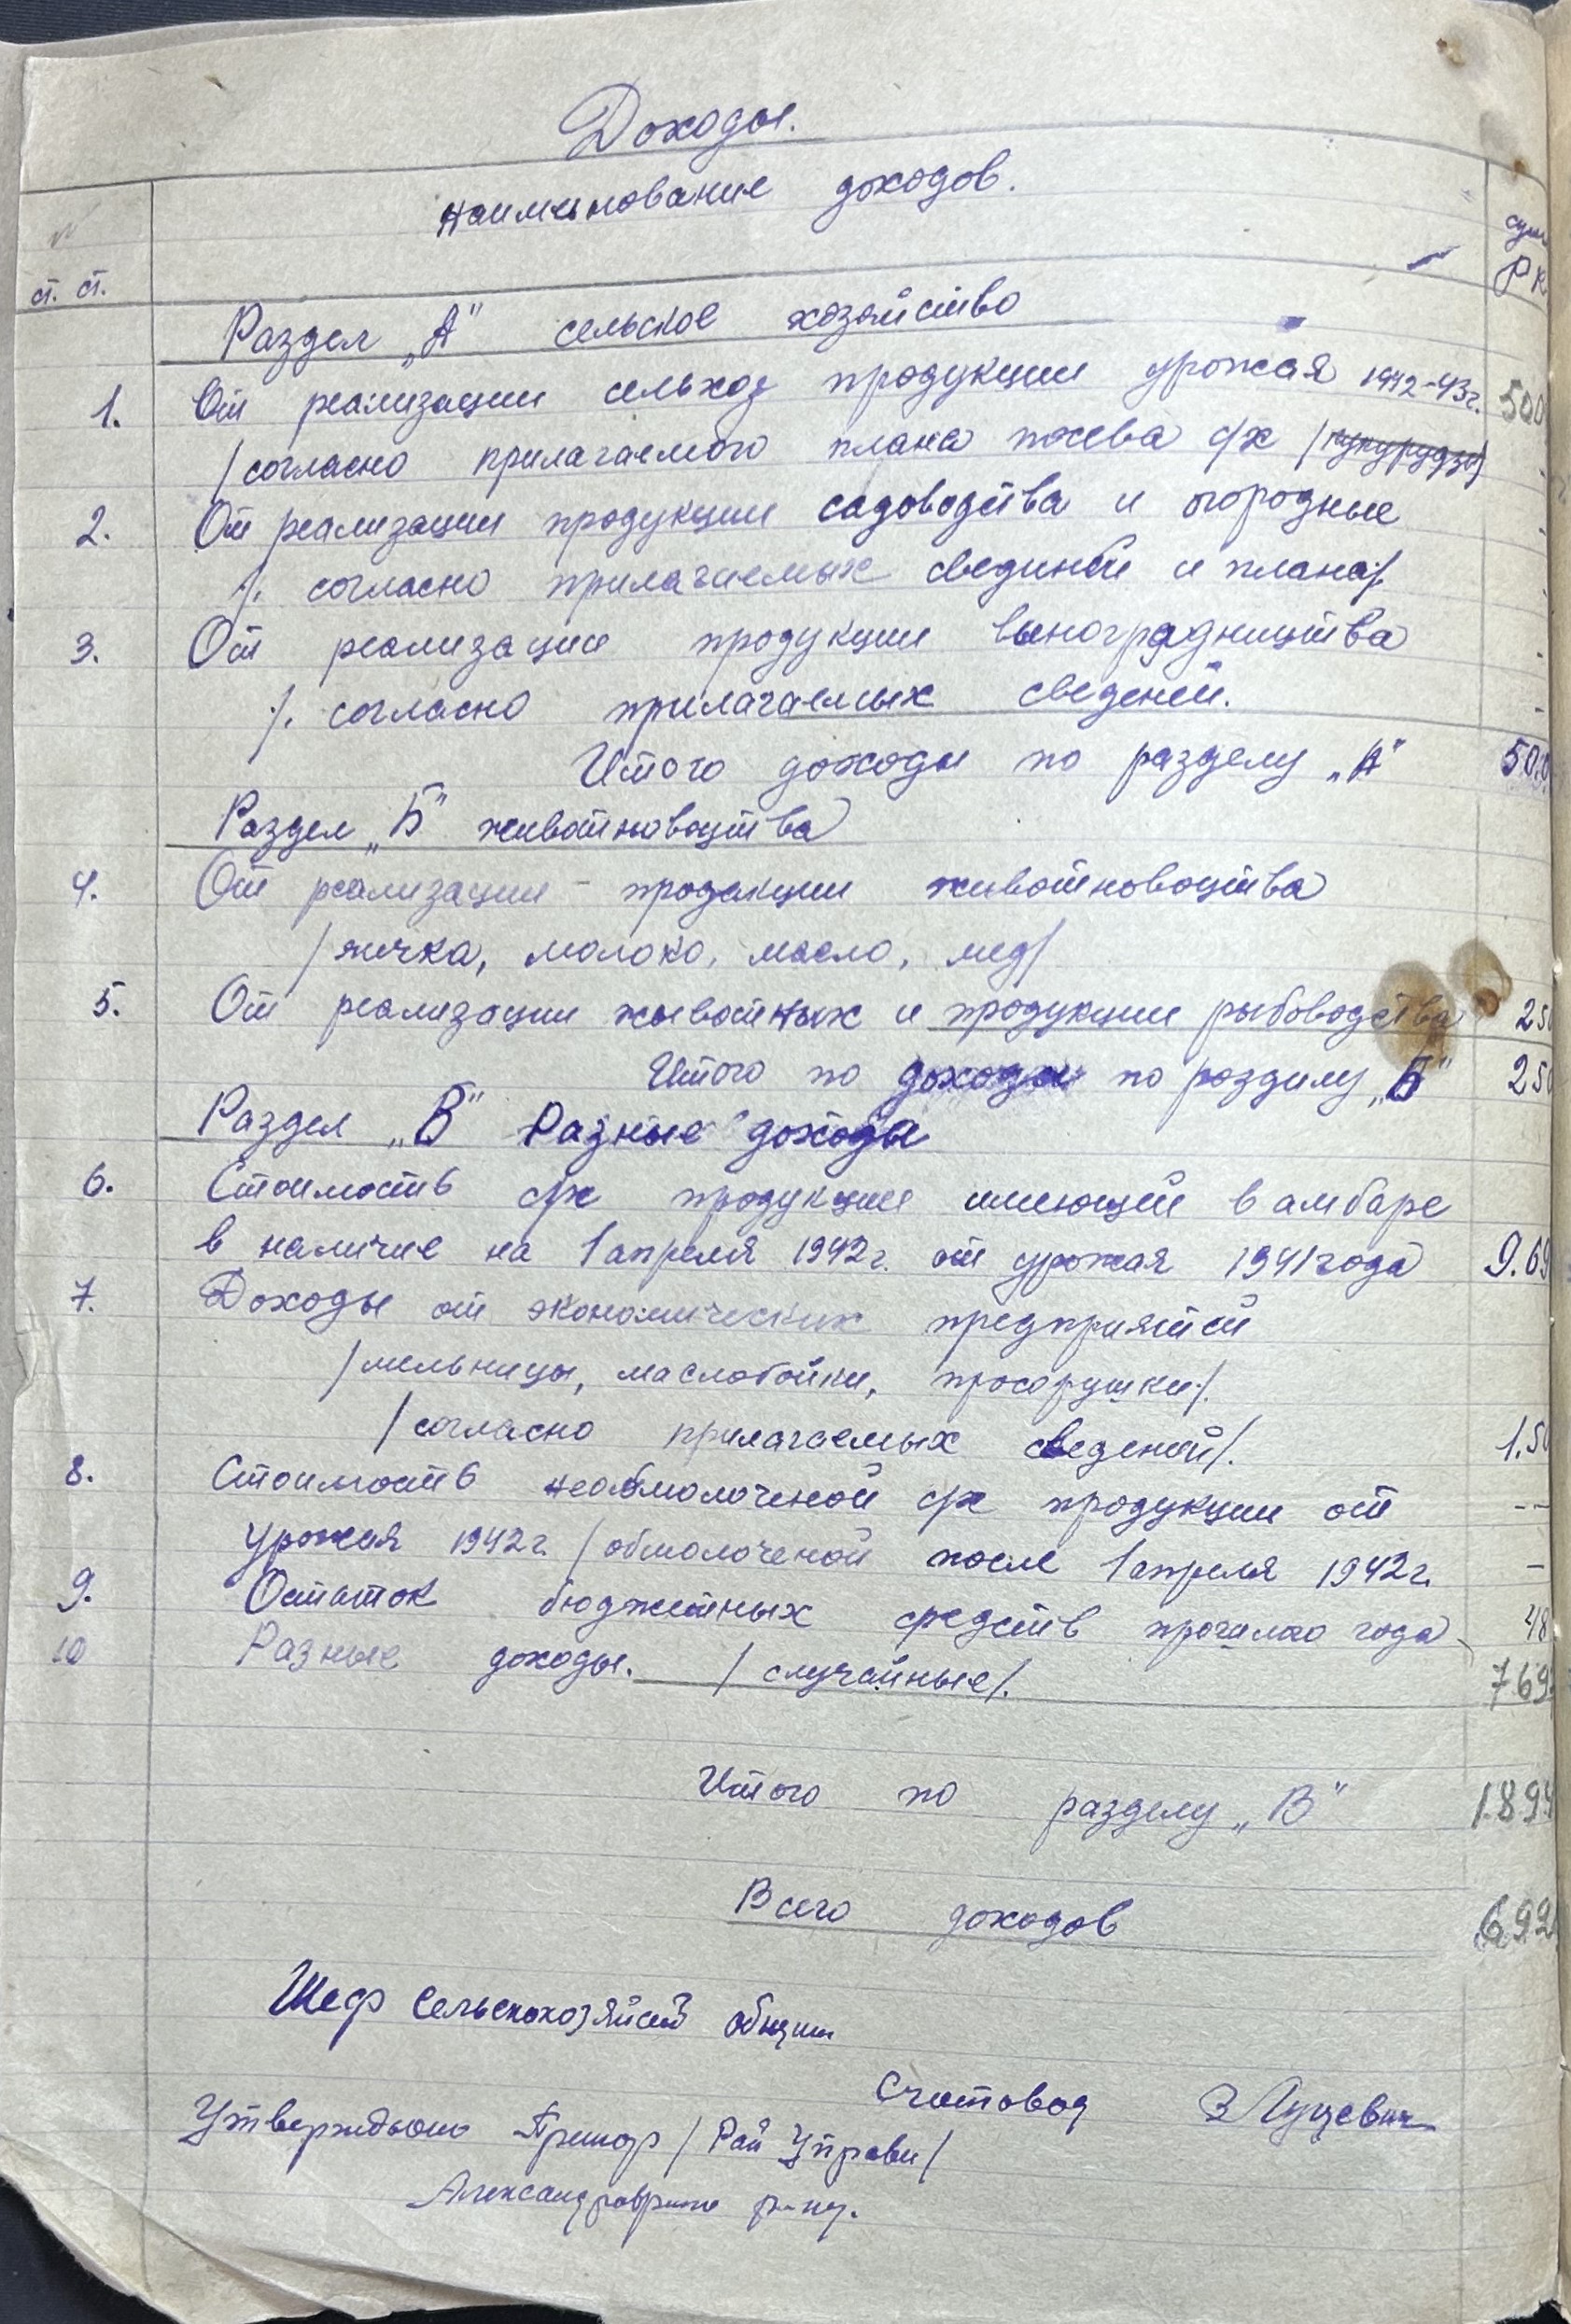 Доходы.
наименование доходов.
ст. ст.
Рк
Раздел „А" сельское хозяйство
1. От реализации сельхоз продукции урожая 1942-43г. 500
/согласно прилагаемого плана посева с/х /кукурудзы/
2. От реализации продукции садоводства и огородные
/. согласно прилагаемых сведений и плана/.
3. От реализации продукции виноградництва
/. согласно прилагаемых сведений.
Итого доходы по разделу „А" 500
Раздел „Б" животноводства
4. От реализации - продукции животноводства
/яичка, молоко, масло, мед/
5. От реализации животных и продукции рыбоводства 250
Итого по доходы по розделу „Б" 250
Раздел „В" Разные доходы
6. Стоимость с/х продукции имеющей в амбаре
в наличие на 1 апреля 1942г. от урожая 1941года 9.69
7. Доходы от экономических предприятий
/мельницы, маслобойки, просорушки/.
/согласно прилагаемых сведений/. 1.50
8. Стоимость необмолоченой с/х продукции от --
урожая 1942г. /обмолоченой после 1 апреля 1942г. -
9. Остаток бюджетных средств прошлого года 48
10 Разные доходы. /случайные/. 769
Итого по разделу „В" 1894
Всего доходов 692
Шеф сельскохозяйст общины
Счетовод ЗЛуцевич
Утверждьоно Претор /Рай Управы/